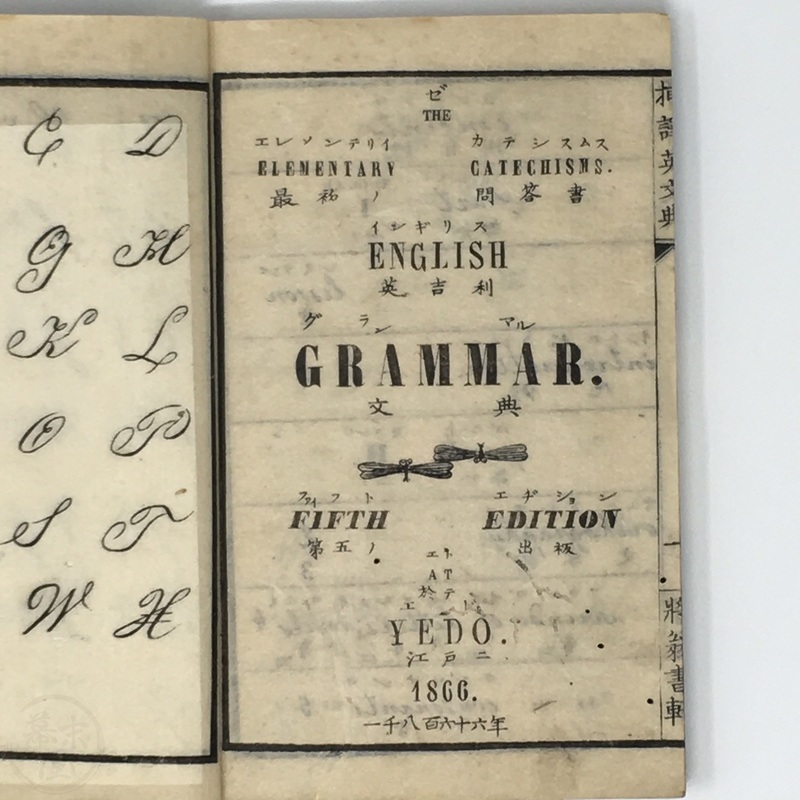 C D
G H
K L
O P
S T
W H
ゼ
THE
エレメンテリイ カテシスムス
ELEMENTARY CATECHISMS.
最初ノ 問答書
イシギリス
ENGLISH
英吉利
グラン マル
GRAMMAR.
文 典
ファィフト エヂション
FIFTH EDITION
第五ノ 出板
エト
AT
於テ
エド
YEDO.
江戸ニ
1866.
一千八百六十六年
挿譯英文典
一